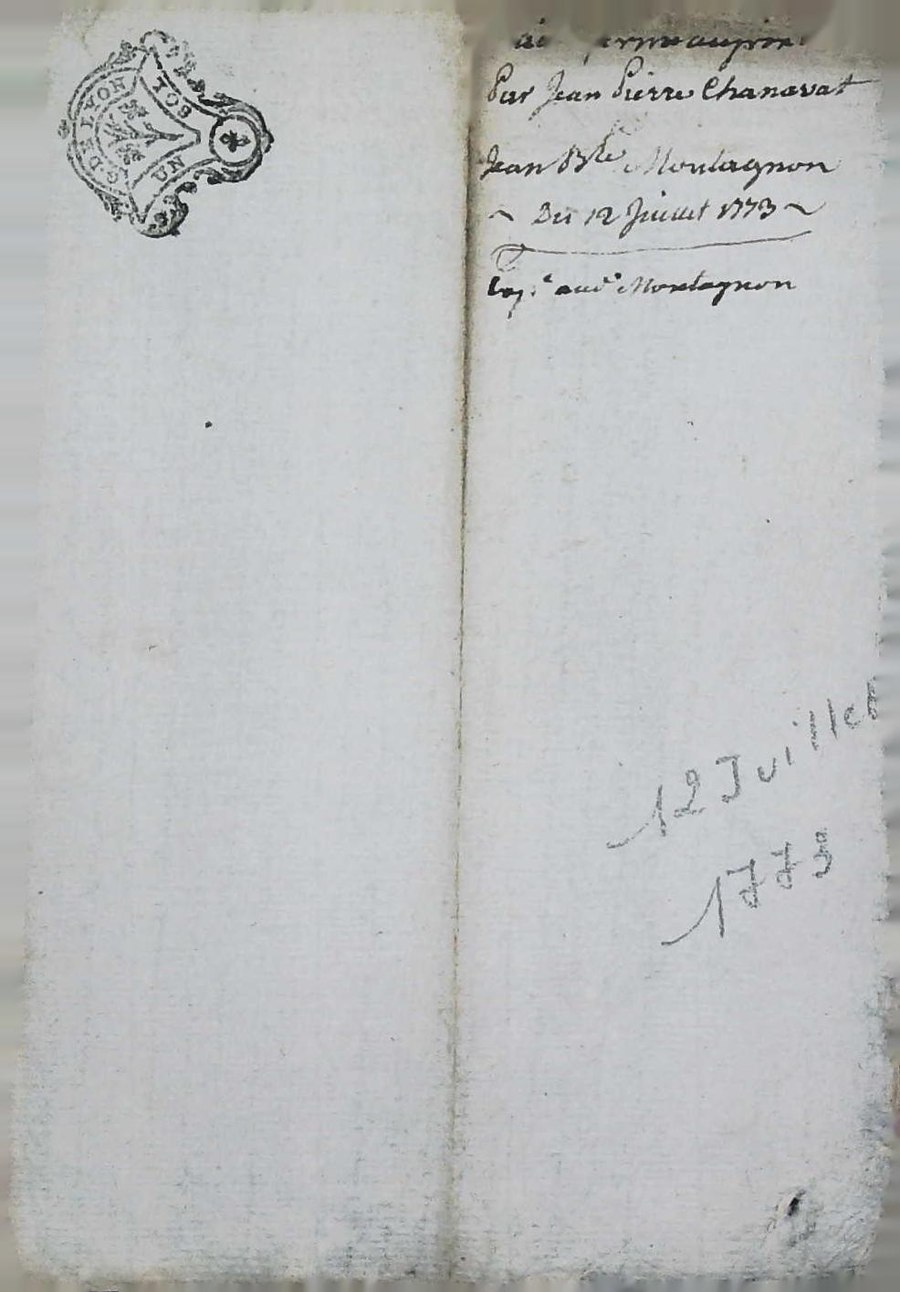 G. DE LYON
UN SOL
Par Jean Pierre Chanavat
Jean Bte Montagnon
~ Du 12 Juillet 1773 ~
Montagnon
12 Juillet
1773